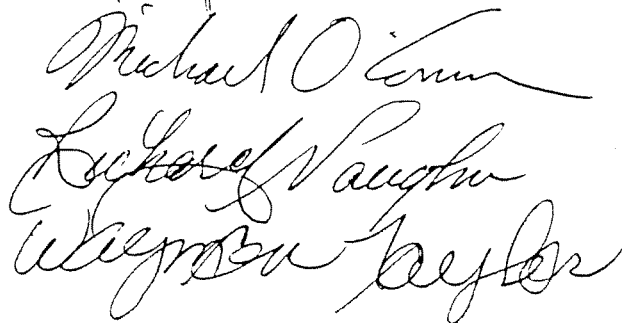 Michael O'Connor
Richard Vaughn
Taylor